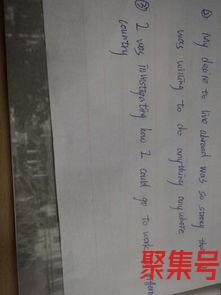 ② My desire to live abroad was so strong that
was willing to do anything anywhere
③ I was investigating how I could go to work
country
聚集号